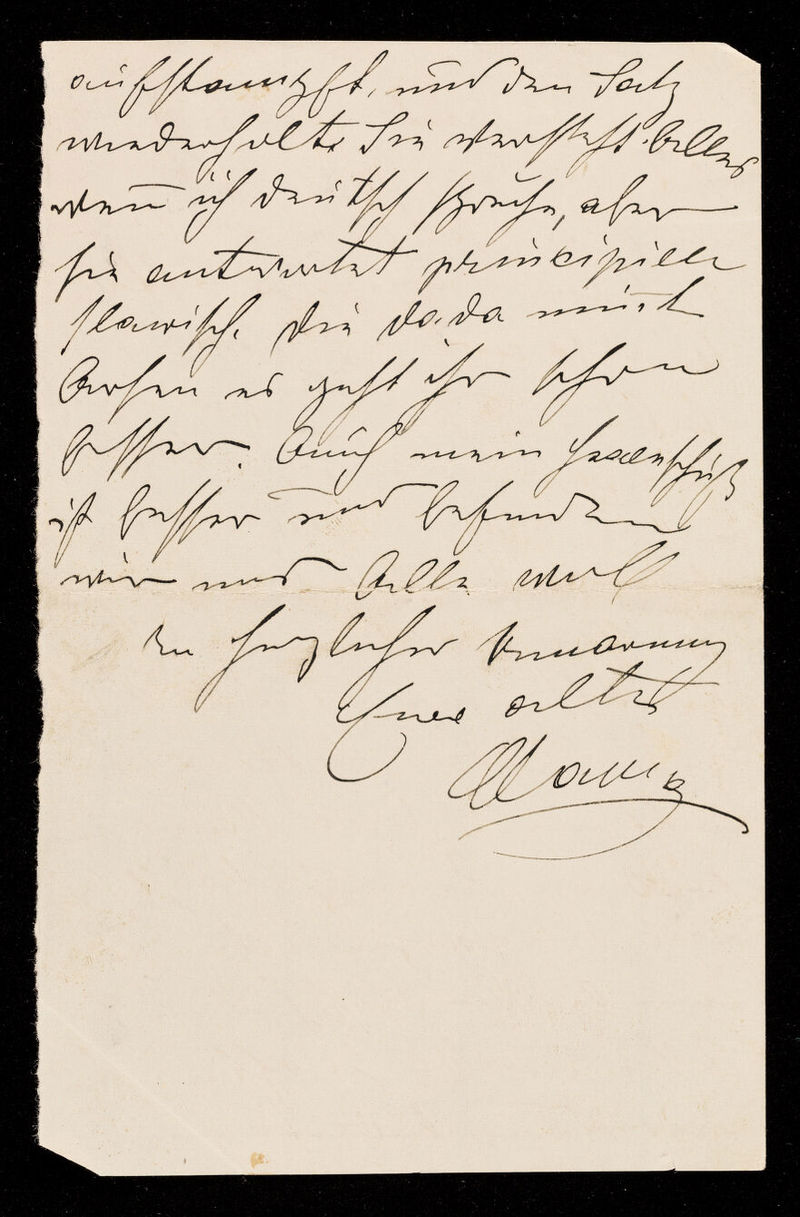 aufstampft, und den Satz
wiederholt. Sie versteht Alles
wenn ich deutsch spreche, aber
sie antwortet principiell
slawisch. Die Dada
es geht ihr schon
besser. Auch mein
ist besser und befinden
wir uns Alle wol
In herzlicher Umarmung
Eure alte
Mama